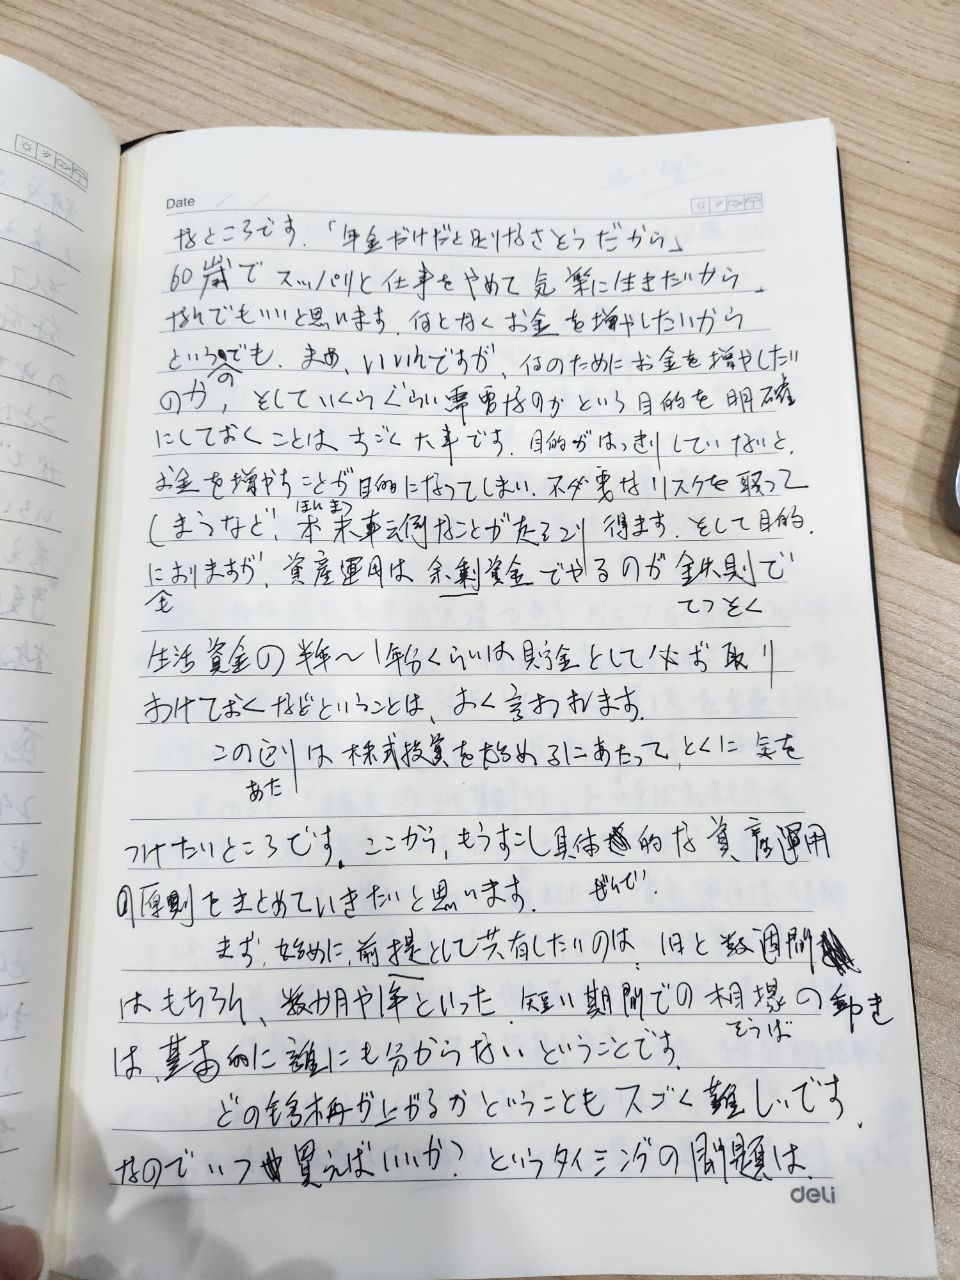 Date / /
なところです。「年金だけだと足りなさそうだから」
60歳でスッパリと仕事をやめて気楽に生きたいから。
なんでもいいと思います。何となくお金を増やしたいから
というのでも、まあ、いいんですが、何のためにお金を増やしたい
のか、そしていくらぐらい需要なのかという目的を明確
にしておくことはすごく大事です。目的がはっきりしていないと、
お金を増やすことが目的になってしまい、不必要なリスクを取って
しまうなど、本末転倒なことが起こり得ます。そして目的
ほんまつ
におりますが、資産運用は余剰資金でやるのが鉄則で
てっそく
生活資金の半年〜1年分くらいは貯金として必ず取り
わけておくなどということは、よく言われます。
この辺りは株式投資を始めるにあたって、とくに金を
あたり
つけたいところです。ここから、もうすこし具体的な資産運用
の原則をまとめていきたいと思います。
ぜんてい
まず、始めに、前提として共有したいのは、1日と数週間
はもちろん、数か月や1年といった、短い期間での相場の動き
そうば
は、基本的に誰にも分からないということです。
どの銘柄が上がるかということもスゴく難しいです。
なのでいつ買えばいいか?というタイミングの問題は、
deli